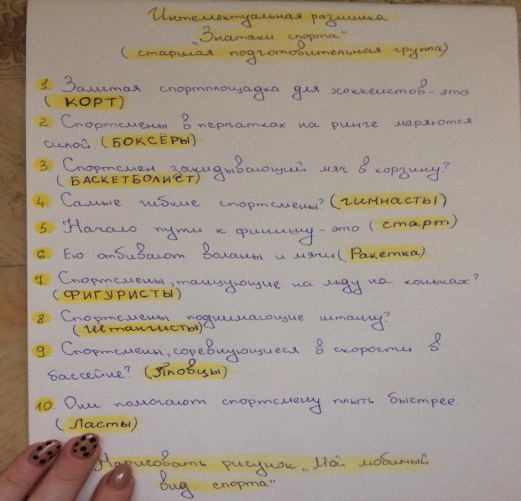 Интеллектуальная разминка
„Знатоки спорта“
(старшая подготовительная группа)
1. Залитая спортплощадка для хоккеистов - это
(КОРТ)
2. Спортсмены в перчатках на ринге меряются
силой. (БОКСЁРЫ)
3. Спортсмен закидывающий мяч в корзину?
(БАСКЕТБОЛИСТ)
4. Самые гибкие спортсмены? (ГИМНАСТЫ)
5. Начало пути к финишу - это (СТАРТ)
6. Ею отбивают воланы и мячи (Ракетка)
7. Спортсмены, танцующие на льду на коньках?
(ФИГУРИСТЫ)
8. Спортсмены поднимающие штангу?
(Штангисты)
9. Спортсмены, соревнующиеся в скорости в
бассейне? (Пловцы)
10. Они помогают спортсмену плыть быстрее.
(Ласты)
Нарисовать рисунок „Мой любимый
вид спорта“